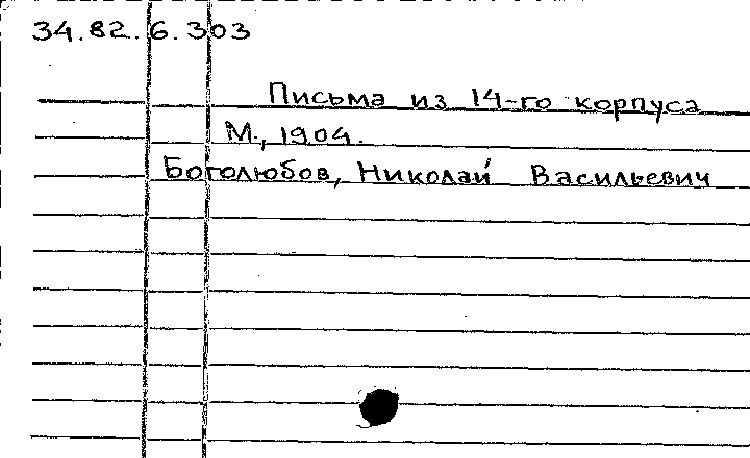 34.82.6.303
Письма из 14-го корпуса
М., 1904.
Боголюбов, Николай Васильевич